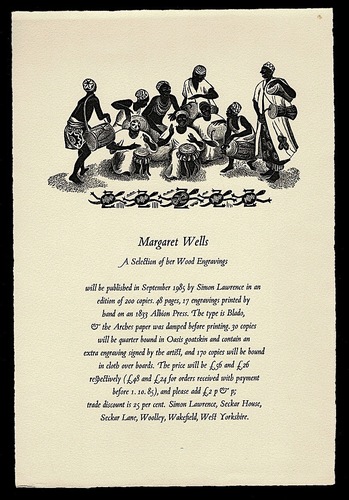 Margaret Wells
A Selection of her Wood Engravings
will be published in September 1985 by Simon Lawrence in an
edition of 200 copies. 48 pages, 17 engravings printed by
hand on an 1833 Albion Press. The type is Blado,
& the Arches paper was damped before printing. 30 copies
will be quarter bound in Oasis goatskin and contain an
extra engraving signed by the artist, and 170 copies will be bound
in cloth over boards. The price will be £56 and £26
respectively (£48 and £24 for orders received with payment
before 1. 10. 85), and please add £2 p & p;
trade discount is 25 per cent. Simon Lawrence, Seckar House,
Seckar Lane, Woolley, Wakefield, West Yorkshire.